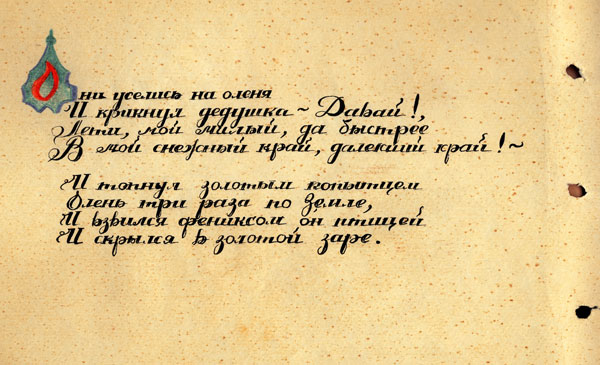 Они уселись на оленя
И крикнул дедушка ~ Давай!,
Лети, мой милый, да быстрее
В мой снежный край, далекий край!~
И топнул золотым копытцем
Олень три раза по Земле,
И взвился фениксом он птицей
И скрылся в золотой заре.